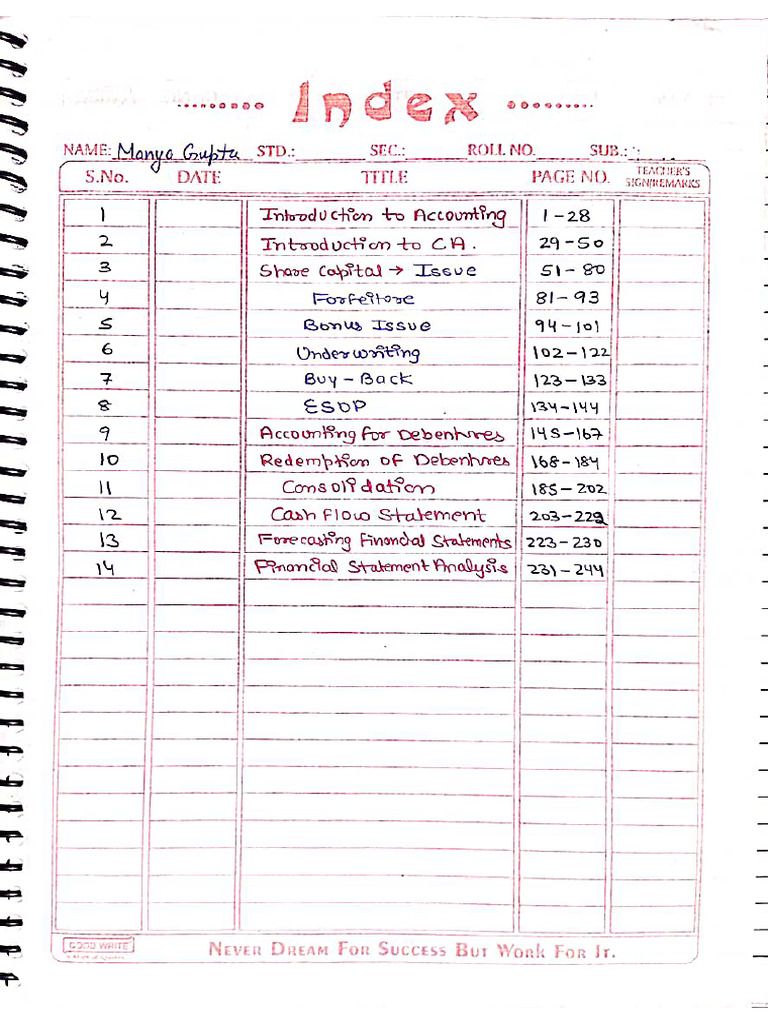 ......... Index .........
NAME: Manya Gupta STD.: SEC.: ROLL NO. SUB.:
S.No. DATE TITLE PAGE NO. TEACHER'S SIGN/REMARKS
1 Introduction to Accounting 1-28
2 Introduction to C.A. 29-50
3 Share Capital → Issue 51-80
4 Forfeiture 81-93
5 Bonus Issue 94-101
6 Underwriting 102-122
7 Buy-Back 123-133
8 ESOP 134-144
9 Accounting for Debentures 145-167
10 Redemption of Debentures 168-184
11 Consolidation 185-202
12 Cash Flow Statement 203-222
13 Forecasting Financial Statements 223-230
14 Financial Statement Analysis 231-244
GOOD WRITE
NEVER DREAM FOR SUCCESS BUT WORK FOR IT.